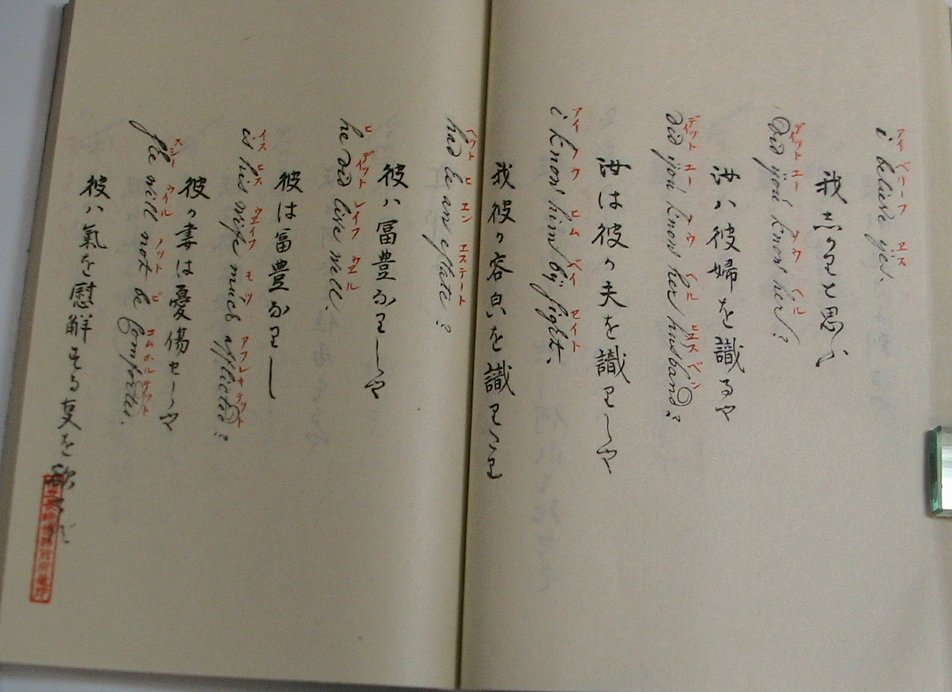 アイ ベリーフ ヱス
i believe yes.
我 志かりと思ふ
ディット ユー ノウ ヘル
did you know her?
汝ハ彼婦を識るや
ディット ユー ノウ ヘル ヒュスベン
did you know her husband?
汝は彼の夫を識りしや
アイ ノウ ヒム バイ セイト
i know him by sight.
我彼の容㒵を識りたり
ヘット ヒ エン ヱステート
had he an estate?
彼ハ冨豊なりしや
ヒ ディット レイフ ウエル
he did live well.
彼は冨豊なりし
イス ヒス ウエイフ モツ アフレキテット
is his wife much afflicted?
彼の妻は憂傷せしや
スシイ ウイル ノット ビ コムホルテット
she will not be comforted.
彼ハ氣を慰解する叓を